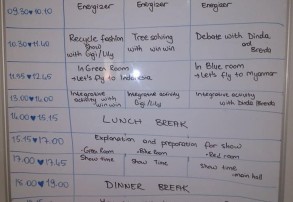 09.30♥10.10
Energizer
Energizer
Energizer
10.30♥11.40
Recycle fashion
Show
with Gigi/Lily
Tree solving
with win win
Debate with Dinda
and
Brenda
11.55♥12.45
In Green Room
→Let's fly to Indonesia
In Blue room
→Let's fly to Myanmar
13.00♥14.00
Integrative
activity with
win win
Integrative activity
Gigi/Lily
Integrative activity
with Dinda Brenda
14.00♥15.15
LUNCH BREAK
15.15♥17.00
Explanation and preparation for show
-Green Room
-Blue Room
-Red room
17.00♥17.45
Show time
Show time
Show time
-main hall
18.00♥19.00
DINNER BREAK